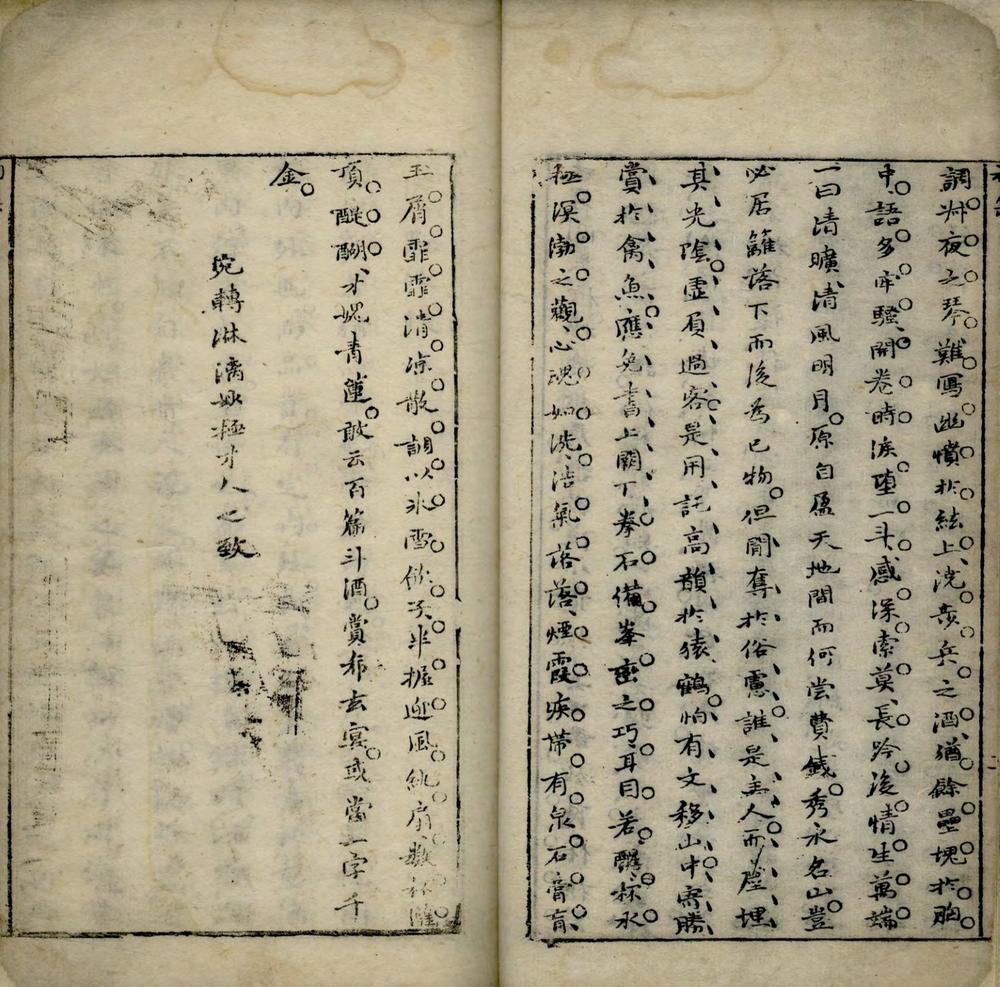 調叔夜之琴難寫幽憤於絃上澆彥兵之酒猶餘壘塊於胸
中語多牢騷開卷時淚墮一斗感深索莫長吟後情生萬端
一曰清曠清風明月原自盈天地間而何嘗費錢秀水名山豈
必居籬落下而後為已物但闘奪於俗慮誰是主人而塵埋
其光陰虛負過客是用託高韻於猿鶴怕有文移山中寄勝
賞於禽魚應免書上闕下拳石備峯巒之巧耳目若醒杯水
極溟渤之觀心魂如洗浩氣落落煙霞疾帶有泉石膏肓
玉屑霏霏清凉散調以氷雪飲次半握迎風紈扇數杯
頂醍醐才媿青蓮敢云百篇斗酒賞希玄宴或當一字千
金
宛轉淋漓妙極才人之致